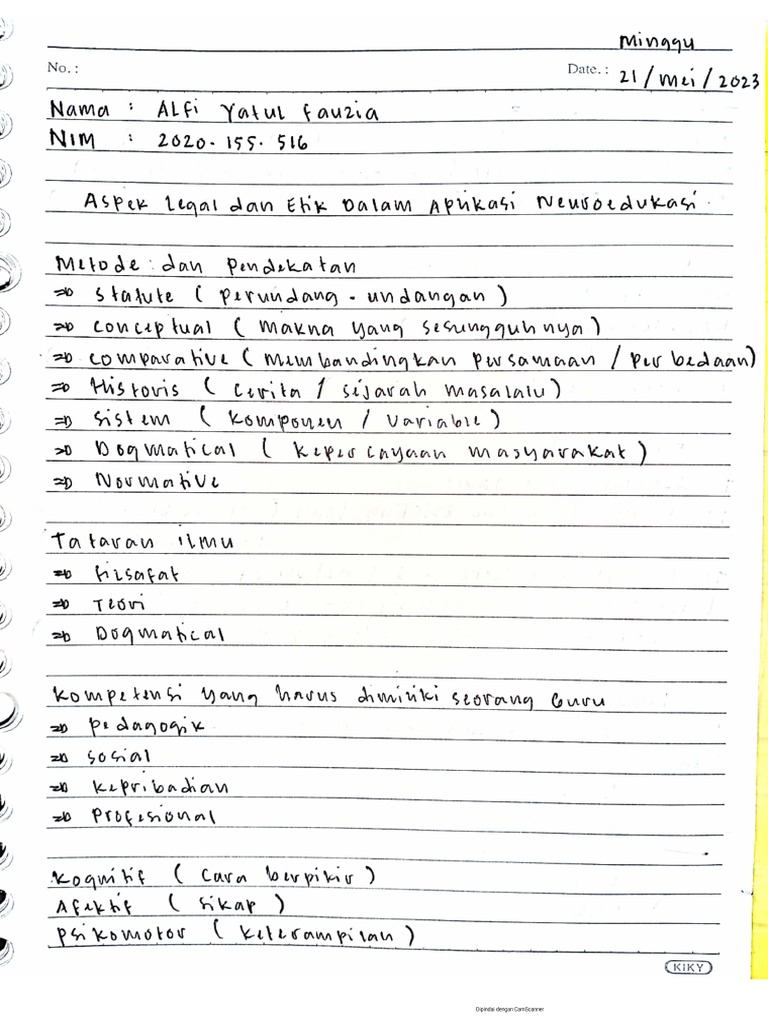 Minggu
No. :
Date. : 21 / Mei / 2023
Nama : Alfi Yatul Fauzia
NIM : 2020.155.516
Aspek Legal dan Etik Dalam Aplikasi Neuroedukasi.
Metode dan Pendekatan
=> Statute ( Perundang - undangan )
=> Conceptual ( Makna yang sesungguhnya )
=> Comparative ( Membandingkan Persamaan / Perbedaan )
=> Historis ( Cerita / sejarah masalalu )
=> Sistem ( Komponen / Variable )
=> Dogmatical ( Kepercayaan masyarakat )
=> Normative
Tataran ilmu
=> Filsafat
=> Teori
=> Dogmatical
Kompetensi yang harus dimiliki seorang Guru
=> Pedagogik
=> Sosial
=> Kepribadian
=> Profesional
Kognitif ( Cara berpikir )
Afektif ( Sikap )
Psikomotor ( Keterampilan )
KIKY
Dipindai dengan CamScanner